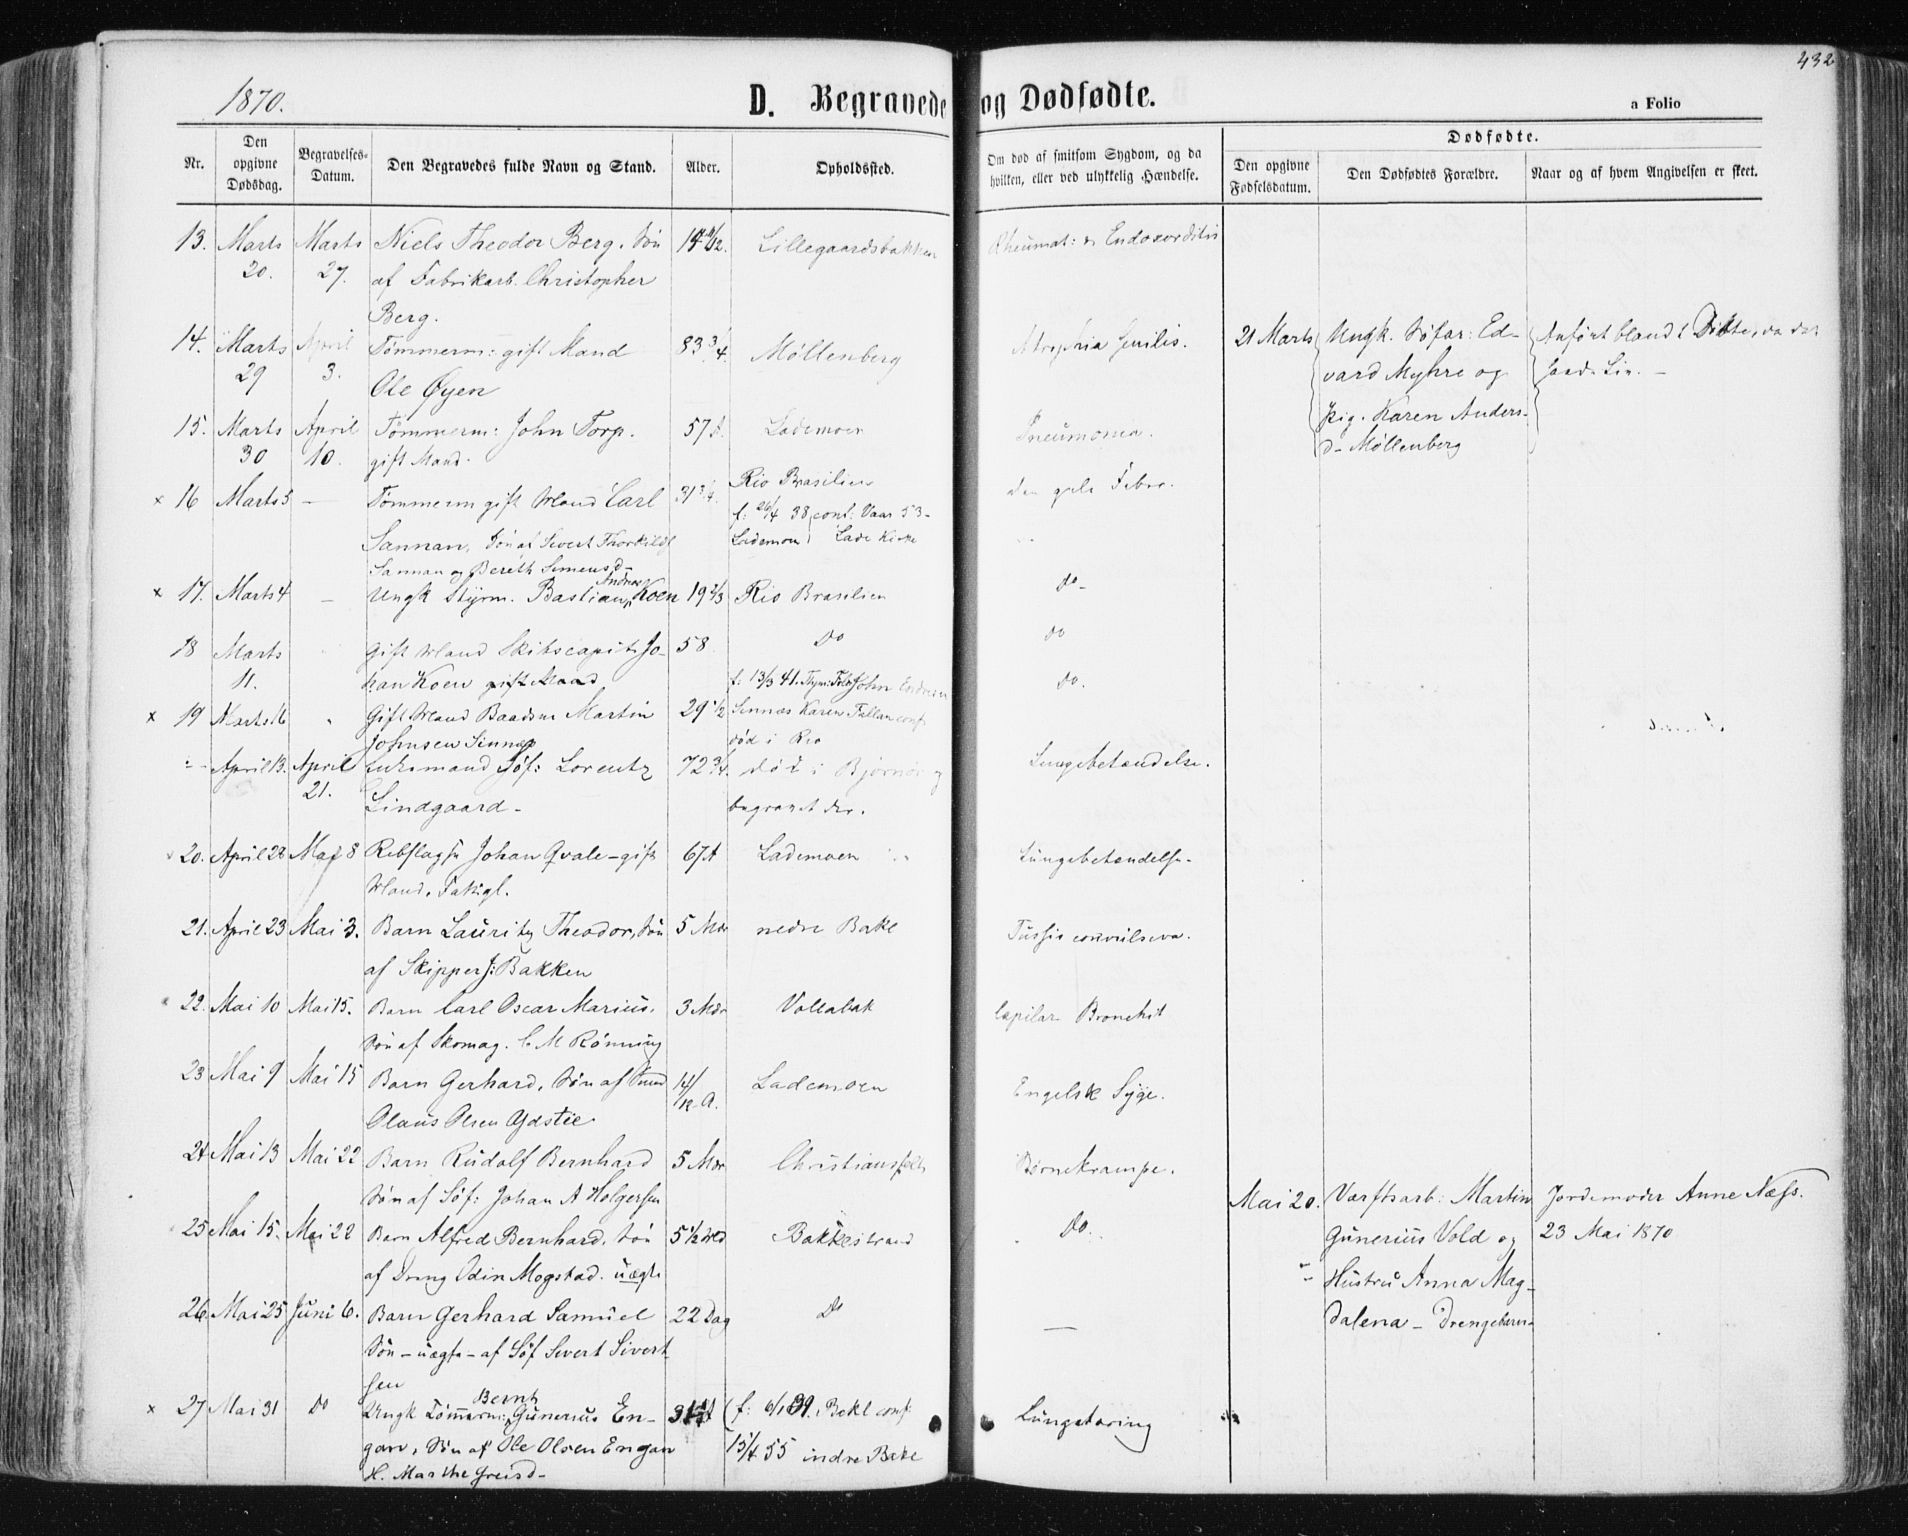 432
1870.
D. Begravede og Dødfødte.
a Folio
Nr.
Den opgivne Dødsdag.
Begravelses-Datum.
Den Begravedes fulde Navn og Stand.
Alder.
Opholdssted.
Om død af smitsom Sygdom, og da hvilken, eller ved ulykkelig Hændelse.
Dødfødte.
Den opgivne Fødselsdatum.
Den Dødfødtes Forældre.
Naar og af hvem Angivelsen er skeet.
13. Marts 20. Marts 27. Niels Theodor Berg. Søn Lillegaardsbakken Rheumat: & Endocarditis
af Fabrikarb. Christopher
Berg.
14. Marts 29 April 3. Tømmerm: gift Mand 83 3/4 Møllenberg Atrophia Senilis. 21 Marts Ungk. Søfar: Ed-
Ole Øyen
vard Myhre og
Pig. Karen Anders-
d- Møllenberg
15. Marts 30 April 10. Tømmerm: John Torp. 57 A. Lademoen Pneumonia.
gift Mand.
x 16 Marts 5 — Tømmerm gift Mand Carl 31 3/4 Rio Brasilien den gule Feber.
Sannan, Søn af Sivert Thorkilds
f: 26/4 38 conf: Vaar 53-
Lademoen Lade Kirke
Sannan og Bereth Simensd-
x 17. Marts 4 — Ungk Styrm. Bastian Andreas Koen 19 2/3 Rio Brasilien do-
18 Marts 11. Gift Mand Skibscapit: Jo- 58 Do do
han Koen gift Mand
x 19 Marts 16 " Gift Mand Baadsm Martin 29 1/2 f: 13/3 41. John do.
Johnsen Sinnæs
Sinnæs Karen conf
død i Rio
April 13. April 21. Enkemand Søf: Lorentz 72 3/4. død i Bjørnør og Lungebetændelse.
Lindgaard- begravet der.
20. April 28 Mai 8 Rebslagsv Johan Qvale-gift 67 A Lademoen Lungebetændelse-
Mand. Fattigl.
21. April 23 Mai 3. Barn Lauritz Theodor, Søn 5 Mdr nedre Bakl Tussis convulsiva.
af Skipper J: Bakken
22. Mai 10 Mai 15. Barn Carl Oscar Marius. 3 Mdr Vollabak Capilar Bronchit
Søn af Skomag. C. M Rønning
23 Mai 9 Mai 15 Barn Gerhard, Søn af A. Lademoen Engelsk Syge.
Olaus Olsen Ydstie
24 Mai 13 Mai 22 Barn Rudolf Bernhard 5 Mdr Christiansfeldt Børnekrampe.
Søn af Søf: Johan A Holgersen
25 Mai 15. Mai 22 Barn Alfred Bernhard. Søn 5 1/2 Md Bakkestrand Do.
af Dreng Odin Mogstad. uægte
Mai 20. Værftsarb: Martin Jordemoder Anne Næss.
Gunerius Vold og 23 Mai 1870
Hustru Anna Mag-
dalena - Drengebarn-
26. Mai 25 Juni 6. Barn Gerhard Samuel 22 Dag Do —
Søn-uægte-af Søf Sivert Sivert-
sen
x 27 Mai 31 Do Ungk Tømmerm: Bernt Gunerius En- f: Bakl conf: Lungetæring
gan, Søn af Ole Olsen Engan 15/4 55 indre Bakl
H. Marthe Greisd-